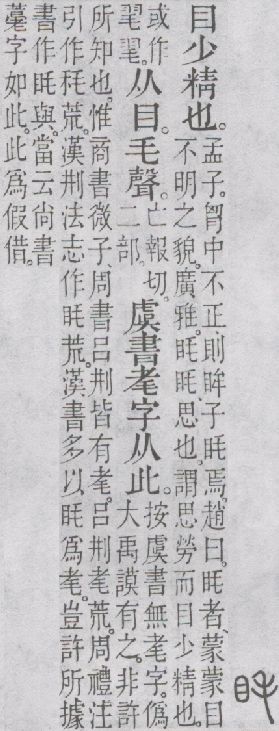 目少精也。
孟子。胷中不正。則眸子眊焉。趙曰。眊者、蒙蒙目
不明之貌。廣雅。眊眊、思也。謂思勞而目少精也。
或作
毣毣。
从目。毛聲。
亡報切。
二部。
虞書耄字从此。
按虞書無耄字。僞
大禹謨有之。非許
所知也。惟商書微子、周書吕刑皆有耄。吕刑耄荒。周禮注
引作秏荒。漢刑法志作眊荒。漢書多以眊爲耄。豈許所據
書作眊與。當云尙書
字如此。此爲假借。